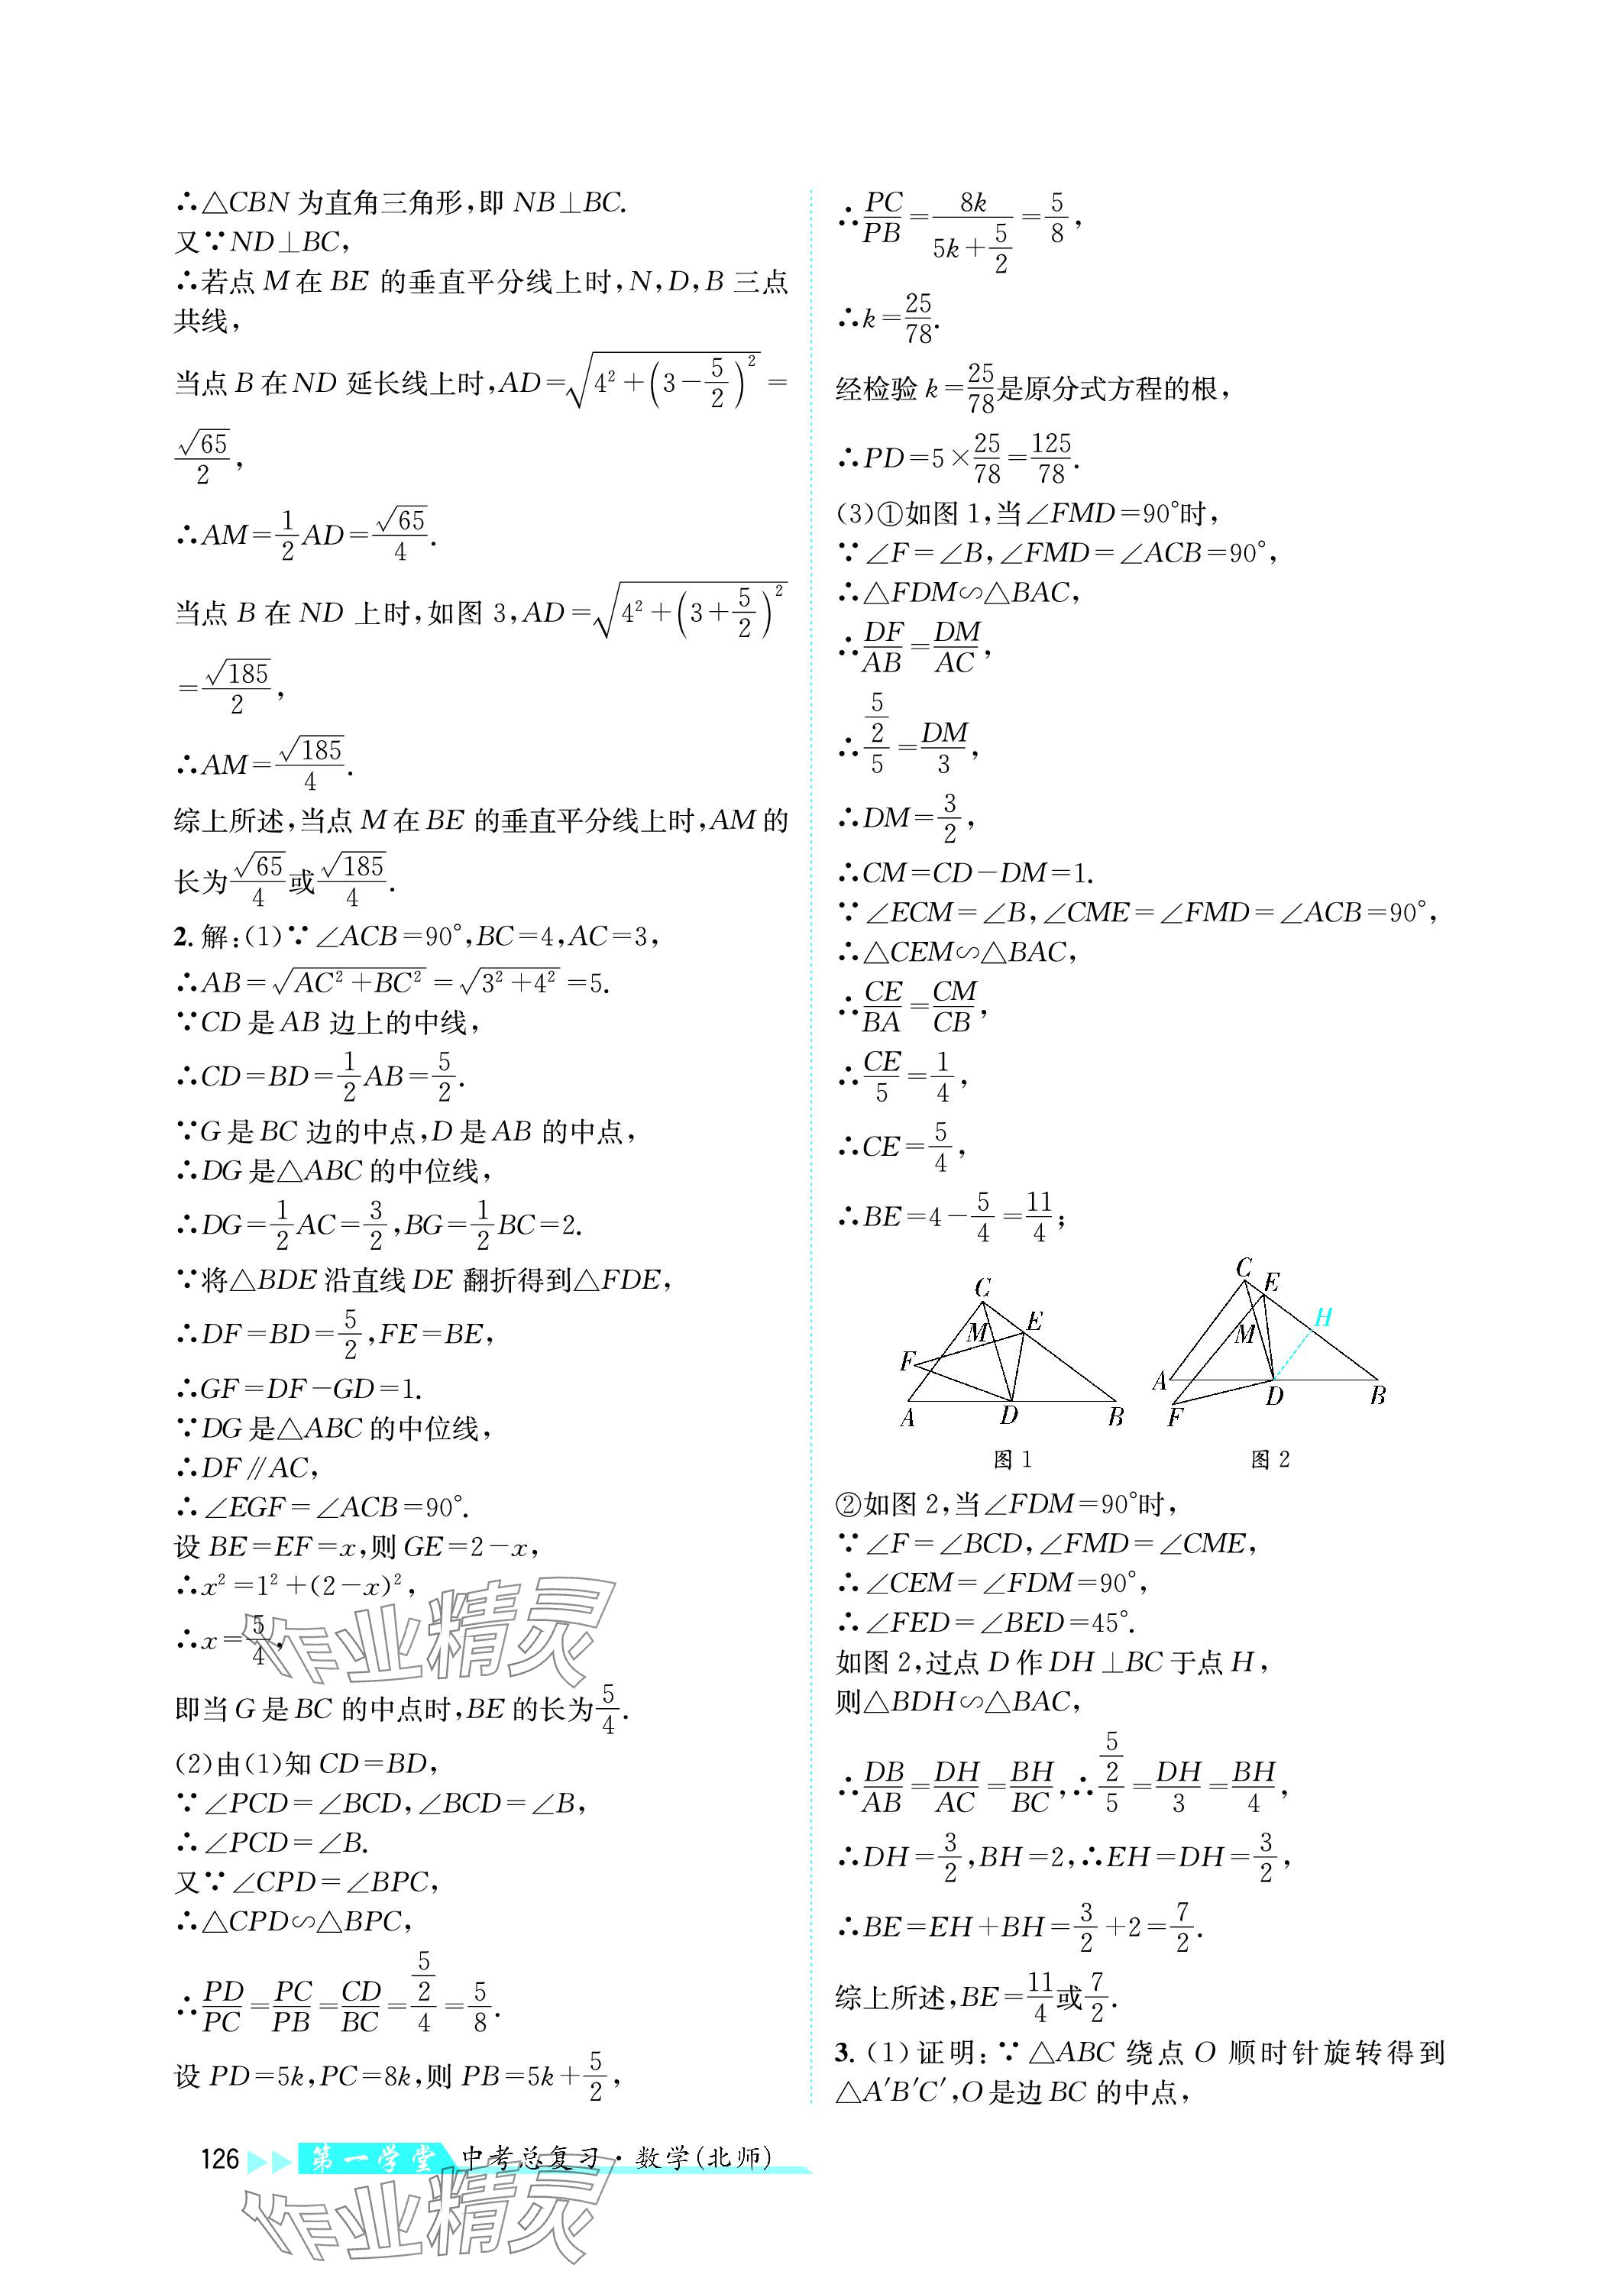 ∴△CBN 为直角三角形,即 NB⊥BC.
又∵ND⊥BC,
∴若点 M 在 BE 的垂直平分线上时,N,D,B 三点
共线,
当点 B 在 ND 延长线上时,AD=√(4²+(3-5/2)²)=
√65/2,
∴AM=1/2AD=√65/4.
当点 B 在 ND 上时,如图 3,AD=√(4²+(3+5/2)²)
=√185/2,
∴AM=√185/4.
综上所述,当点 M 在 BE 的垂直平分线上时,AM 的
长为√65/4或√185/4.
2. 解:(1)∵∠ACB=90°,BC=4,AC=3,
∴AB=√(AC²+BC²)=√(3²+4²)=5.
∵CD 是 AB 边上的中线,
∴CD=BD=1/2AB=5/2.
∵G 是 BC 边的中点,D 是 AB 的中点,
∴DG 是△ABC 的中位线,
∴DG=1/2AC=3/2,BG=1/2BC=2.
∵将△BDE 沿直线 DE 翻折得到△FDE,
∴DF=BD=5/2,FE=BE,
∴GF=DF-GD=1.
∵DG 是△ABC 的中位线,
∴DF∥AC,
∴∠EGF=∠ACB=90°.
设 BE=EF=x,则 GE=2-x,
∴x²=1²+(2-x)²,
∴x=5/4,
即当 G 是 BC 的中点时,BE 的长为5/4.
(2)由(1)知 CD=BD,
∵∠PCD=∠BCD,∠BCD=∠B,
∴∠PCD=∠B.
又∵∠CPD=∠BPC,
∴△CPD∽△BPC,
∴PD/PC=PC/PB=CD/BC=(5/2)/4=5/8.
设 PD=5k,PC=8k,则 PB=5k+5/2,
∴PC/PB=8k/(5k+5/2)=5/8,
∴k=25/78.
经检验 k=25/78是原分式方程的根,
∴PD=5×25/78=125/78.
(3)①如图 1,当∠FMD=90°时,
∵∠F=∠B,∠FMD=∠ACB=90°,
∴△FDM∽△BAC,
∴DF/AB=DM/AC,
∴(5/2)/5=DM/3,
∴DM=3/2,
∴CM=CD-DM=1.
∵∠ECM=∠B,∠CME=∠FMD=∠ACB=90°,
∴△CEM∽△BAC,
∴CE/BA=CM/CB,
∴CE/5=1/4,
∴CE=5/4,
∴BE=4-5/4=11/4;
C
M
E
F
A
D
B
图 1
C
E
H
M
A
D
B
F
图 2
②如图 2,当∠FDM=90°时,
∵∠F=∠BCD,∠FMD=∠CME,
∴∠CEM=∠FDM=90°,
∴∠FED=∠BED=45°.
如图 2,过点 D 作 DH⊥BC 于点 H,
则△BDH∽△BAC,
∴DB/AB=DH/AC=BH/BC,∴(5/2)/5=DH/3=BH/4,
∴DH=3/2,BH=2,∴EH=DH=3/2,
∴BE=EH+BH=3/2+2=7/2.
综上所述,BE=11/4或7/2.
3. (1)证明:∵△ABC 绕点 O 顺时针旋转得到
△A′B′C′,O 是边 BC 的中点,
126 第一学堂 中考总复习·数学(北师)
作业精灵
作业精灵